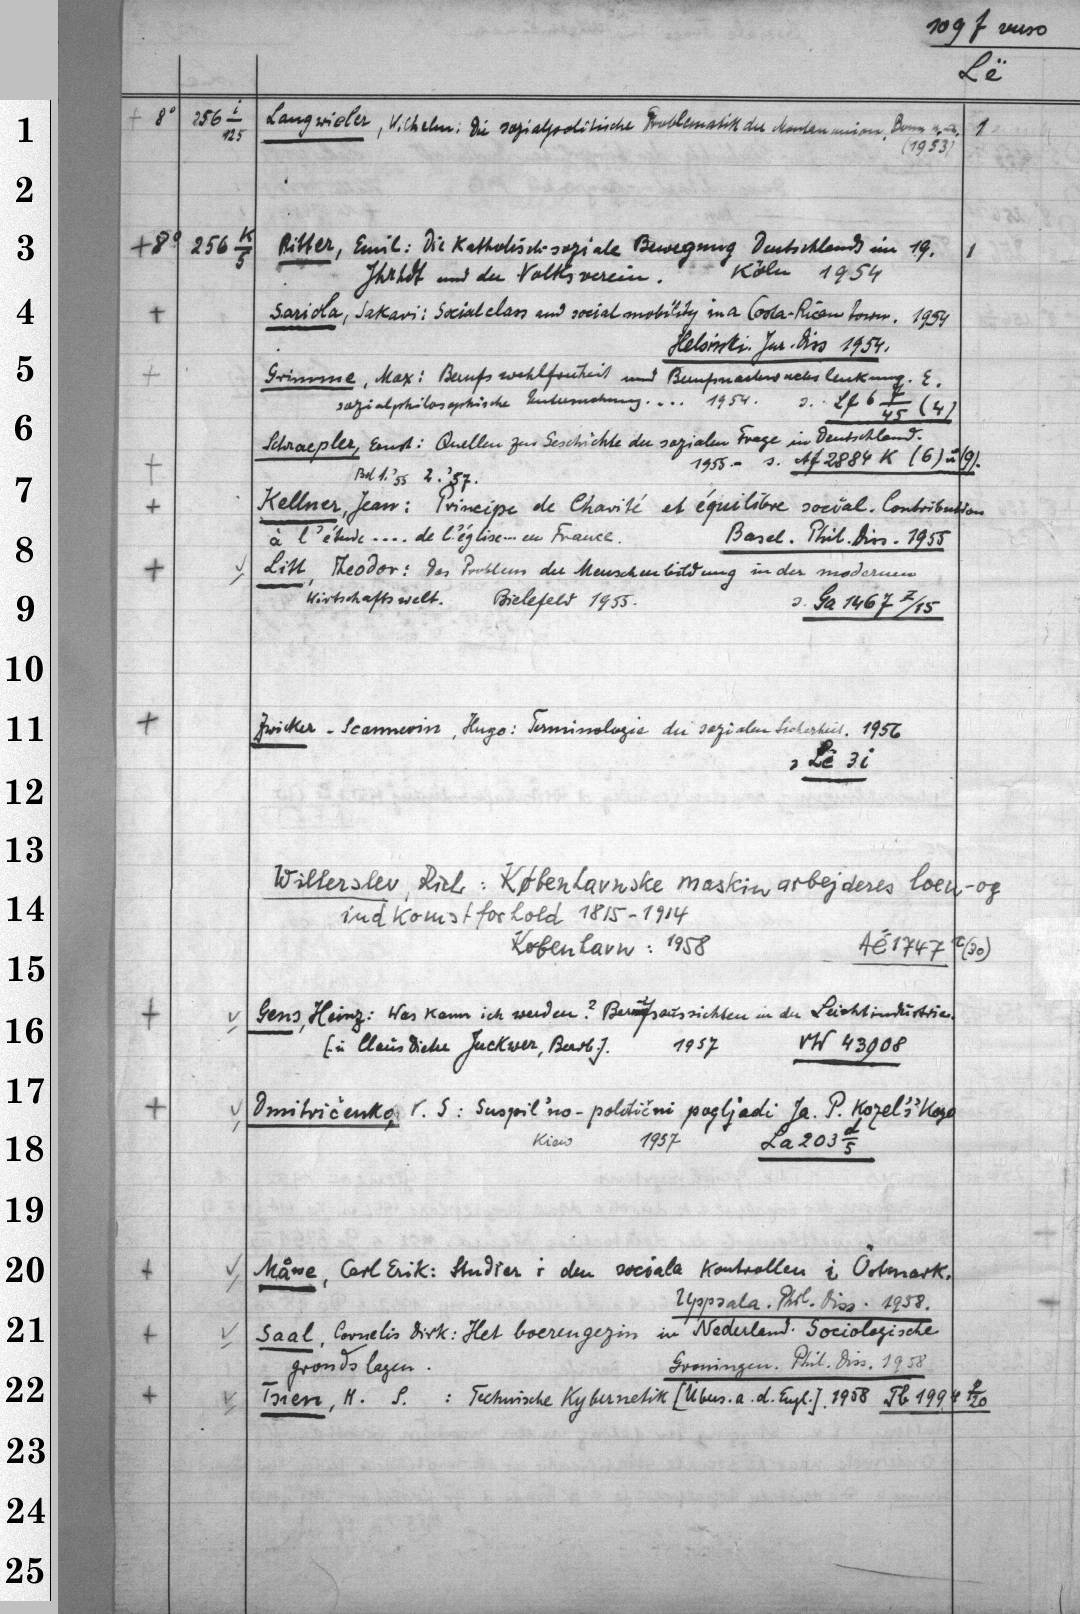 109 f verso
Lë
1
+ 8° 256 i/125 Langwieler, Wilhelm: Die sozialpolitische Problematik der Montanunion. Bonn u.a. 1
(1953)
2
3
+8° 256 K/5 Ritter, Emil: Die Katholisch-soziale Bewegung Deutschlands im 19. 1
Jhrhdt und der Volksverein. Köln 1954
4
+ Sariola, Sakari: Social class and social mobility in a Costa-Rican town. 1954
Helsinki. Jur. Diss 1954.
5
+ Grimme, Max: Berufswahlfreiheit und Berufsnachwuchslenkung. E.
sozialphilosophische Untersuchung.... 1954. s. Lf 6 /45 (4)
6
+ Schraepler, Ernst: Quellen zur Geschichte der sozialen Frage in Deutschland.
1955.- s. Af 2884 K (6) u (9).
Bd 1.'55 2.'57.
7
+ Kellner, Jean: Principe de Charité et équilibre social. Contribution
à l'étude .... de l'église... en France. Basel. Phil. Diss. 1955
8
+ √ Litt, Theodor: Das Problem der Menschenbildung in der modernen
9
Wirtschaftswelt. Bielefeld 1955. s. Ga 1467 Z/15
10
11
+ Zwicker-Scannevin, Hugo: Terminologie der sozialen Sicherheit. 1956
s Lë 3i
12
13
Willerslev, Rich.: Københavnske maskinarbejderes loen-og
14
indkomstforhold 1815-1914
København: 1958 AË 1747 (30)
15
16
+ √ Gens, Heinz: Was kann ich werden? Berufsaussichten in der Leichtindustrie.
[u Claus Dieter Juckwer, Bearb.]. 1957 VW 43908
17
+ √ Dmitričenko, V. S: Suspil'no-politični pogljadi Ja. P. Kozel's'Kogo
18
Kiew 1957 La 203 d/5
19
20
+ √ Månse, Carl Erik: Studier i den sociala Kontrollen i Östmark.
Uppsala. Phil. Diss. 1958.
21
+ √ Saal, Cornelis Dirk: Het boerengezin in Nederland. Sociologische
grondslagen. Groningen. Phil. Diss. 1958
22
+ √ Tsien, H. S. : Technische Kybernetik [Übers. a. d. Engl.]. 1958 Tb 199 /20
23
24
25